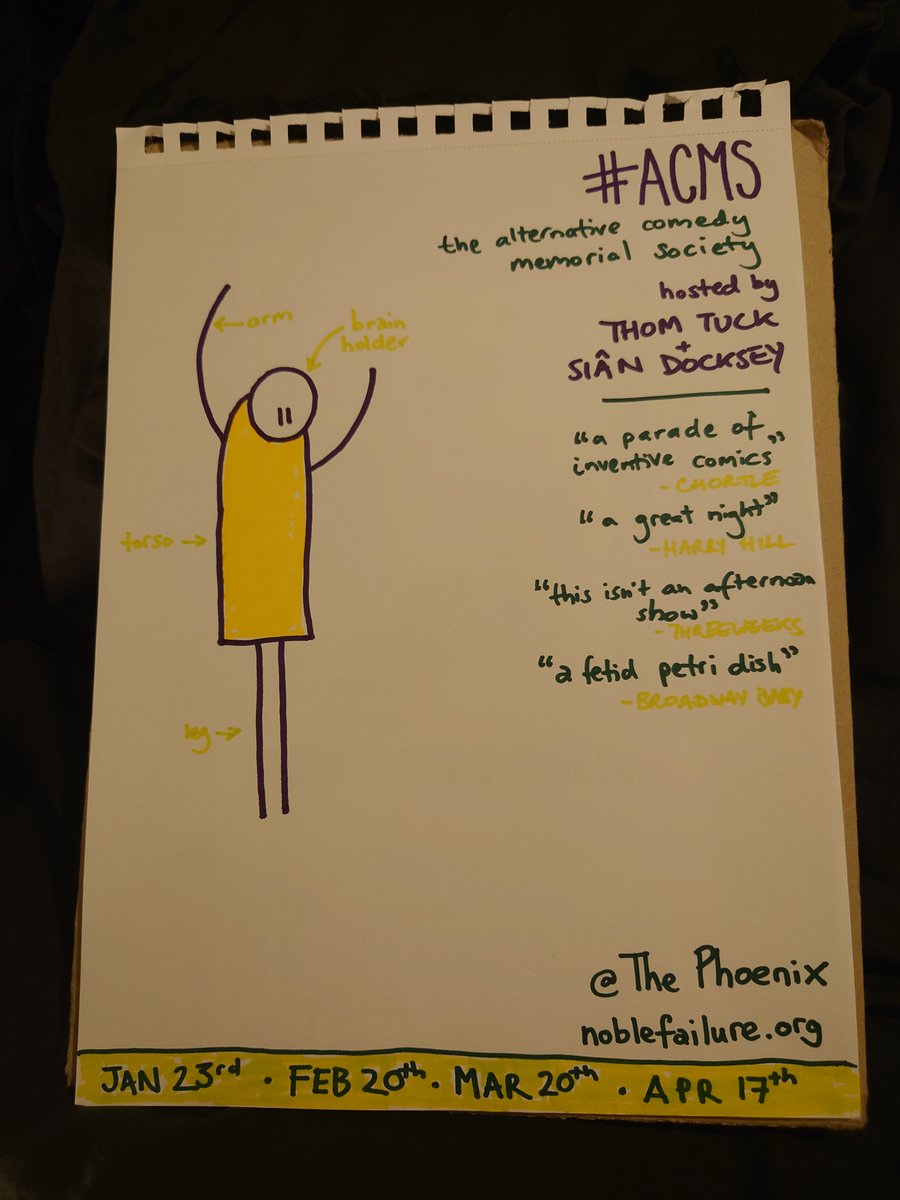 #ACMS
the alternative comedy
memorial society
hosted by
THOM TUCK
+
SIÂN DOCKSEY
"a parade of
inventive comics"
- CHORTLE
"a great night"
- HARRY HILL
"this isn't an afternoon
show"
- THREEWEEKS
"a fetid petri dish"
- BROADWAY BABY
← arm
brain
holder
torso →
leg →
@The Phoenix
noblefailure.org
JAN 23rd · FEB 20th · MAR 20th · APR 17th